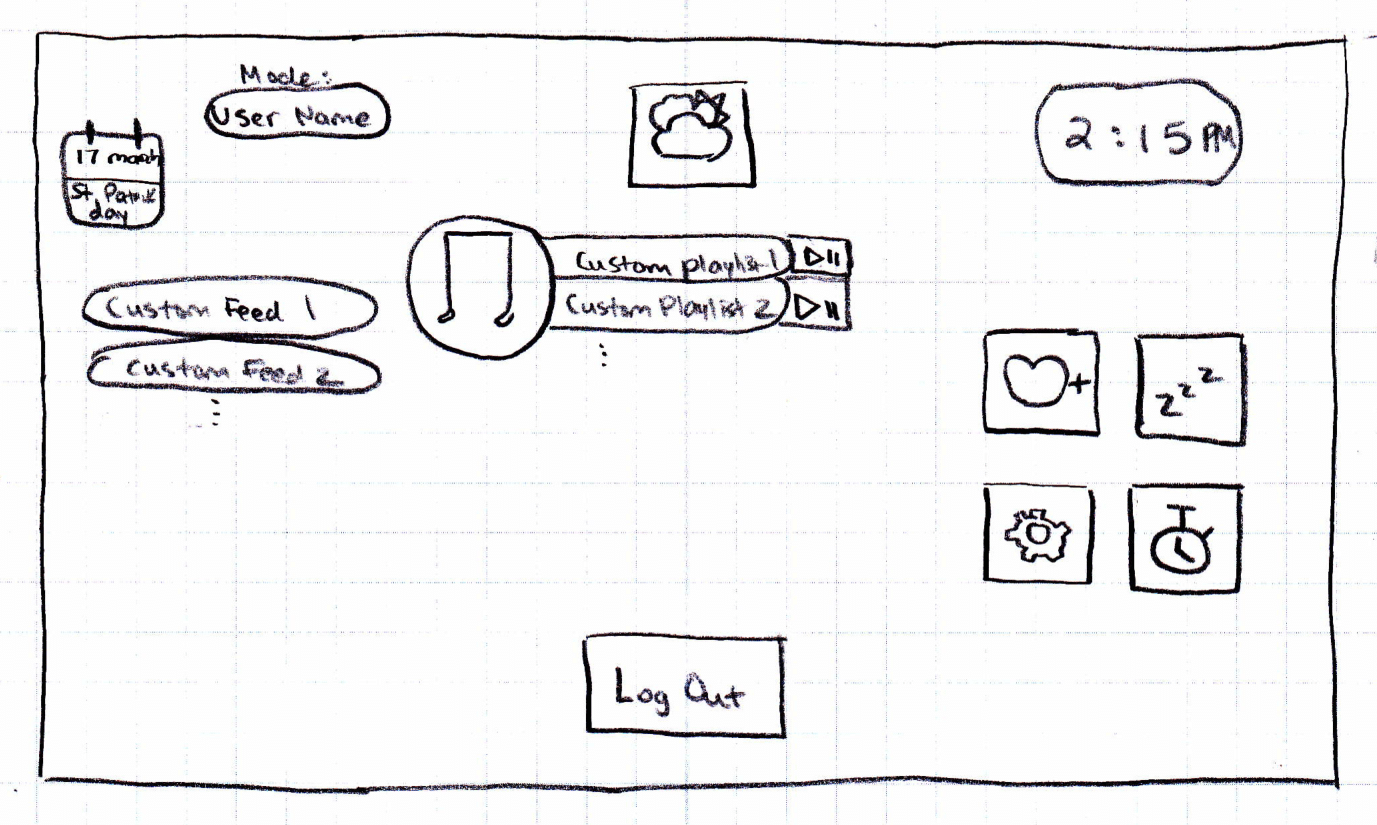 Mode:
User Name
2:15 PM
17 march
St. Patrick
day
Custom playlist 1
Custom Playlist 2
Custom Feed 1
Custom Feed 2
z z z
Log Out